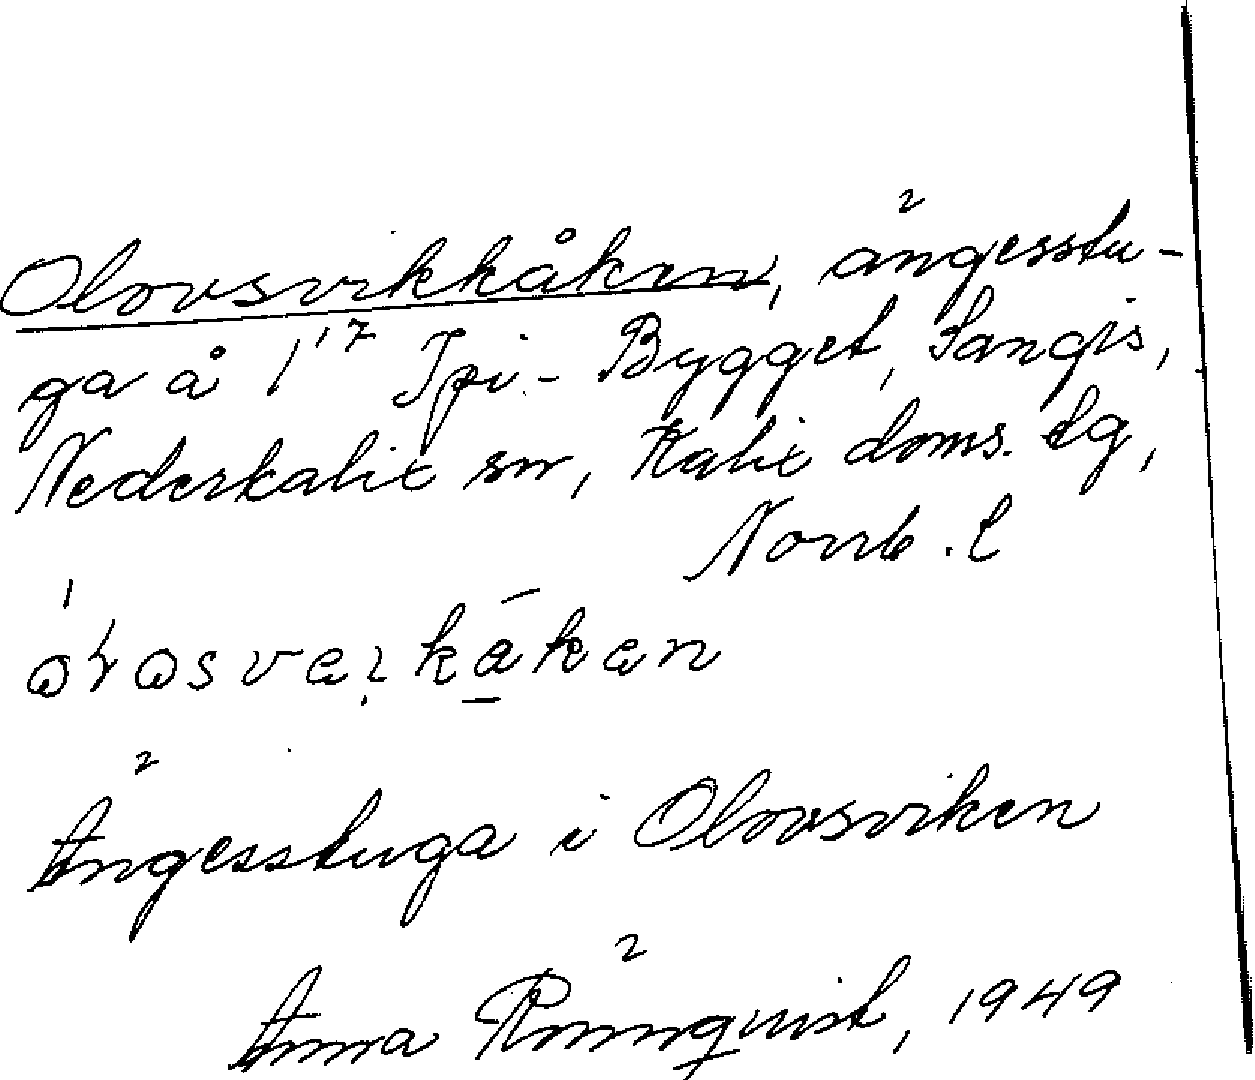 Olovsvikkåken, ängesstu-
ga å 1¹⁷ Ipi-Bygget, Sangis,
Nederkalix sn, Kalix doms. lg,
Norrb. l
Ängesstuga i Olovsviken
Anna Rönnquist, 1949